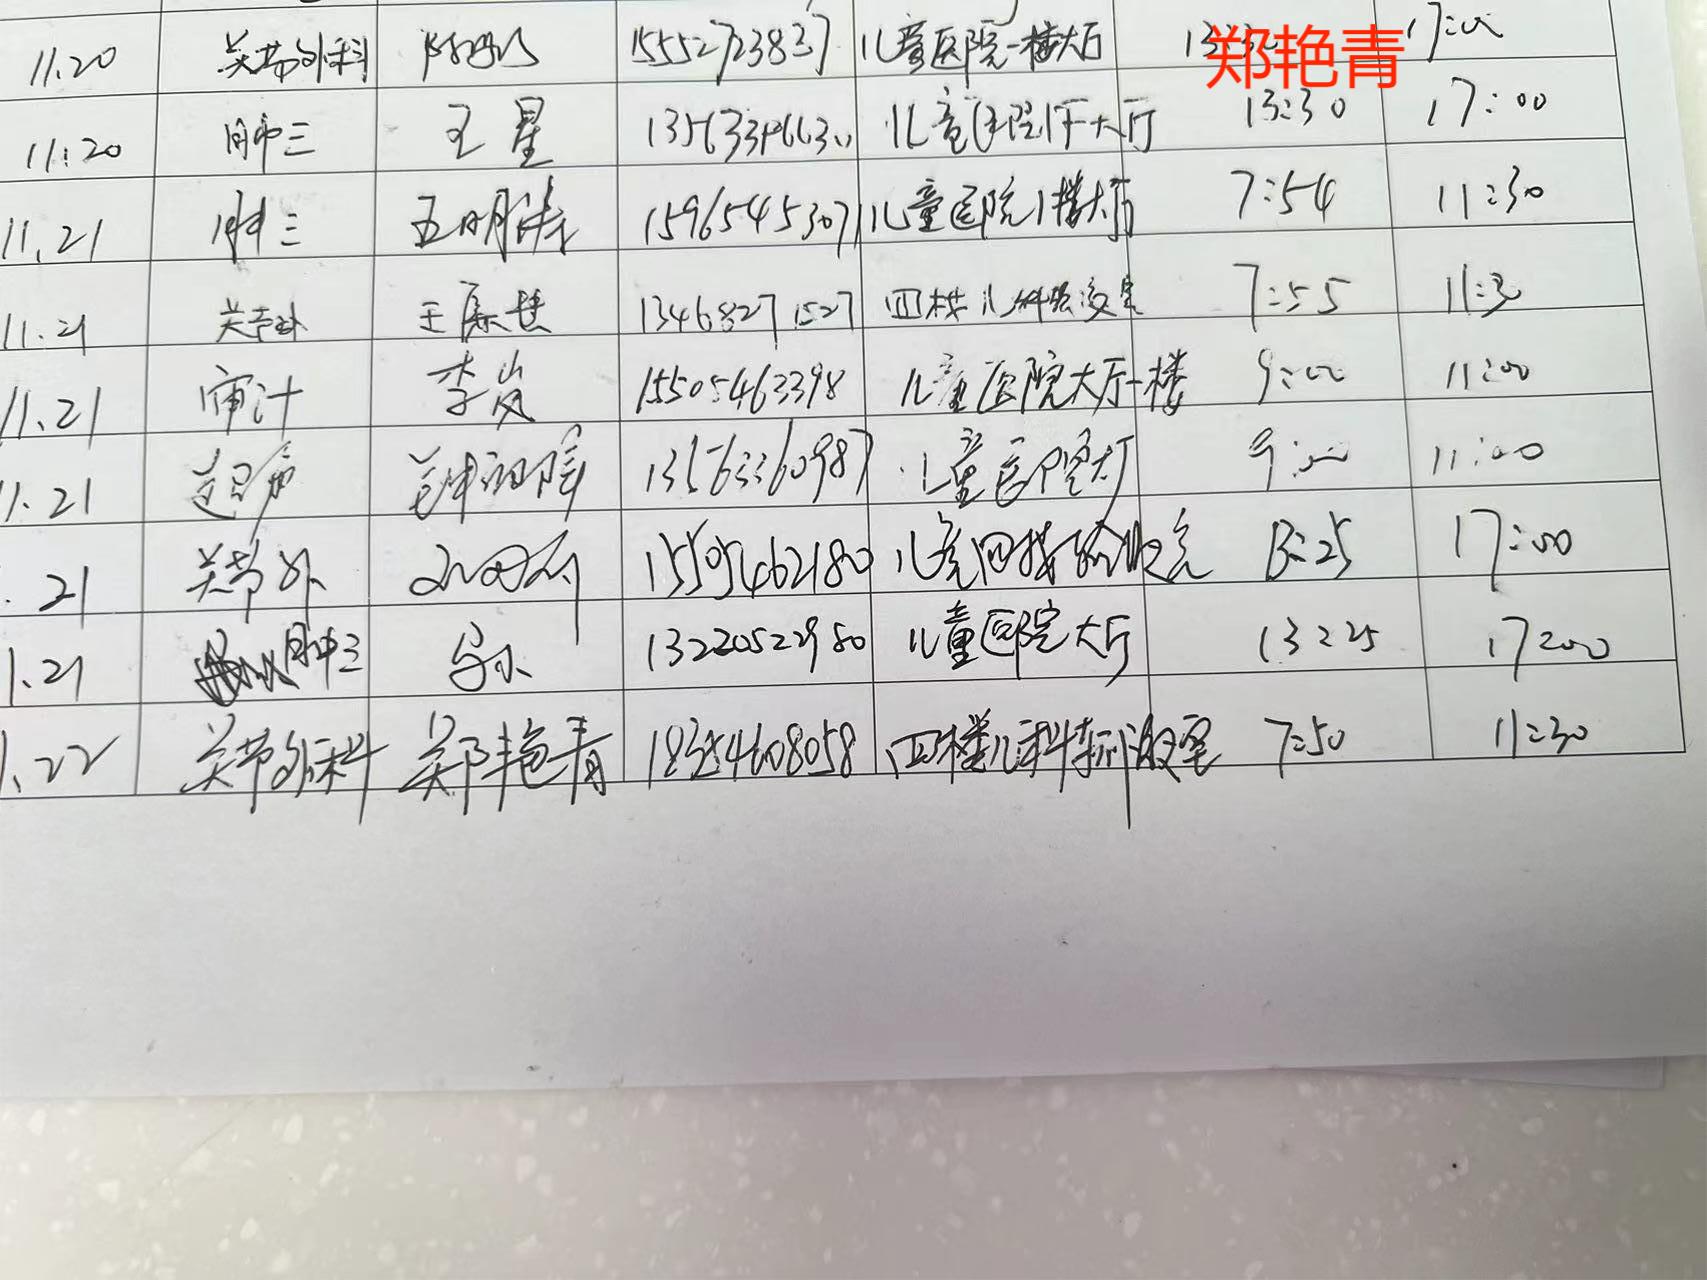 11.20 关节外科 15552723837 儿童医院一楼大厅 17:00
郑艳青
11.20 肿三 王星 儿童医院1F大厅 13:30 17:00
11.21 肿三 15965453071 儿童医院1楼大厅 7:54 11:30
11.21 关节外 王康慧 13468271527 四楼儿科 7:55 11:30
11.21 审计 李岚 15505463398 儿童医院大厅一楼 9:00 11:00
1.21 超声 13563360987 儿童医院大厅 9:00 11:00
.21 关节外 15505462180 儿童四楼 13:25 17:00
1.21 肿三 13220522980 儿童医院大厅 13:25 17:00
1.22 关节外科 郑艳青 18354608058 四楼儿科 7:50 11:30